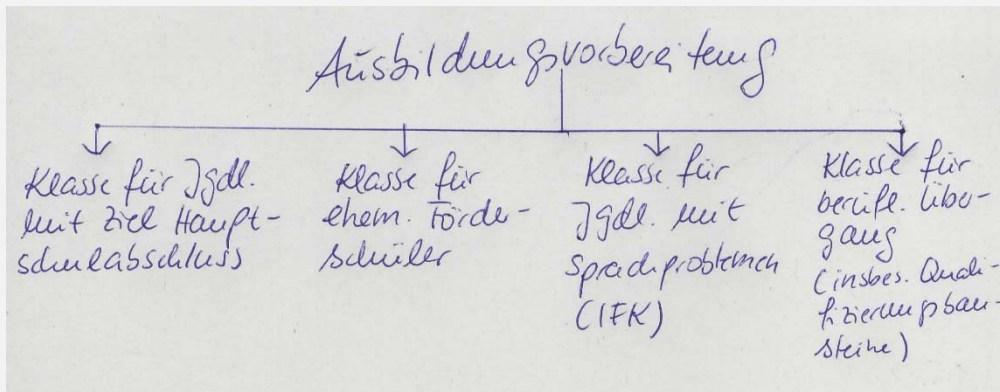 Ausbildungsvorbereitung
Klasse für Jgdl.
mit Ziel Haupt-
schulabschluss
Klasse für
ehem. Förder-
schüler
Klasse für
Jgdl. mit
Sprachproblemen
(IFK)
Klasse für
berufl. Über-
gang
(insbes. Quali-
fizierungsbau-
steine)